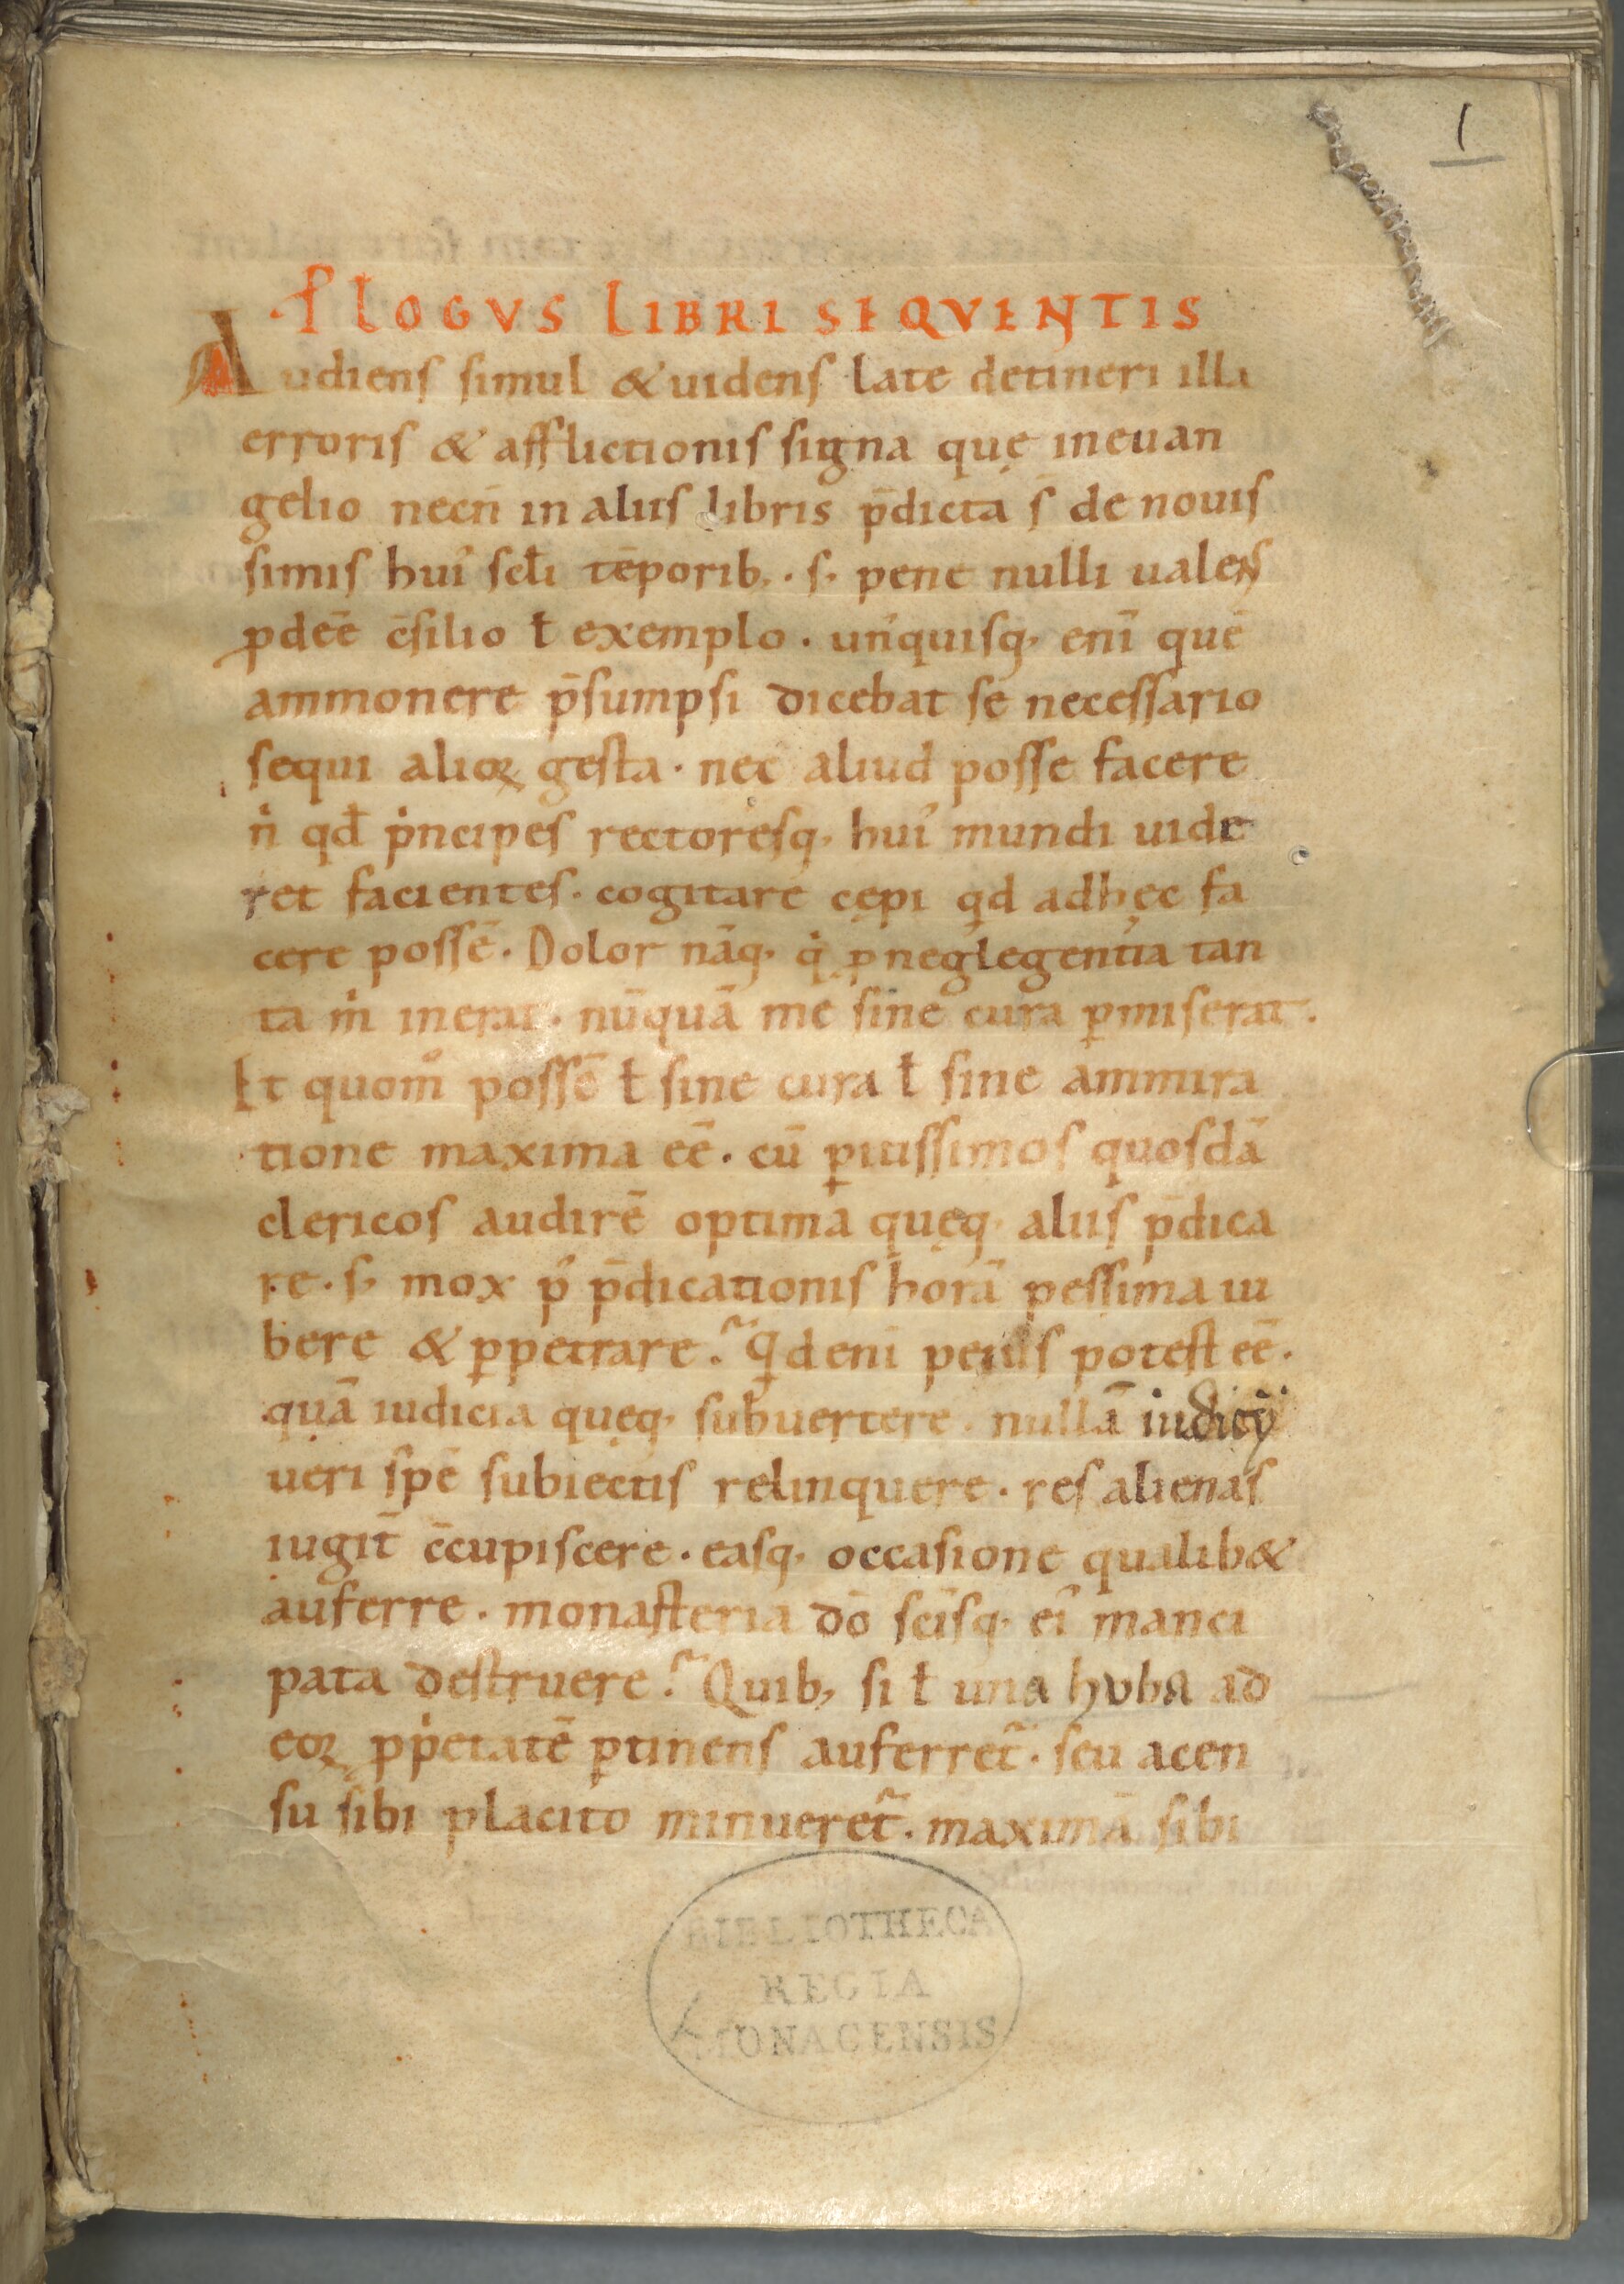 1
PLOGVS LIBRI SEQVENTIS
Audiens simul & uidens late detineri illa
erroris & afflictionis signa quę in euan
gelio necn̄ in aliis libris p̄dicta s̄ de nouis
simis hui᾽ scłi tēporib; · s; pene nulli ualens
ꝓdeē c̄silio ł exemplo · un᾽quisq; enī quē
ammonere p̄sumpsi dicebat se necessario
sequi alioꝝ gesta · nec aliud posse facere
nͥ qđ pͥncipes rectoresq; hui᾽ mundi uide
ret facientes · cogitare cępi qd adhęc fa
cere possē · Dolor nāq; qͥ ꝓ neglegentia tan
ta mͥ inerat · nūquā me sine cura ꝑmiserat ·
Et quomͦ possē ł sine cura ł sine ammira
tione maxima eē · cū ꝑitissimos quosdā
clericos audirē optima quęq; aliis p̄dica
re · s; mox p᾽ p̄dicationis horā pessima iu
bere & ꝑpetrare? qͥd enī peius potest eē ·
quā iudicia quęq; subuertere · nullā iudicij
ueri spē subiectis relinquere · res alienas
iugit̄ c̄cupiscere · easq; occasione qualib&
auferre · monasteria dō scīsq; ei᾽ manci
pata destruere? Quib; si ł una huba ad
eoꝝ ꝓpͥetatē ꝑtinens auferret᷑ · seu a cen
su sibi placito minueret᷑ · maximā sibi
BIBLIOTHECA
REGIA
MONACENSIS